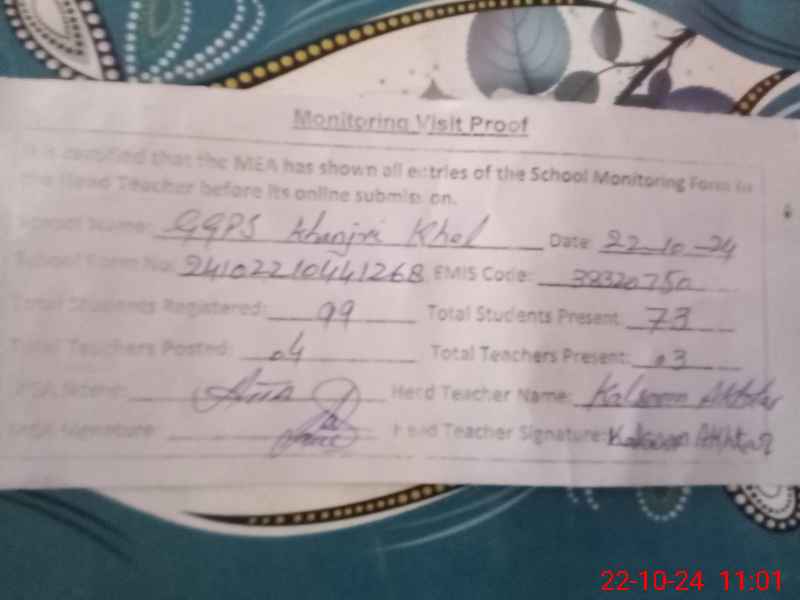 Monitoring Visit Proof
It is certified that the MEA has shown all entries of the School Monitoring Form to
the Head Teacher before its online submission.
School Name: GGPS Khanjri Khel Date: 22-10-24
School Form No: 24102210441268 EMIS Code: 39320750
Total Students Registered: 99 Total Students Present: 73
Total Teachers Posted: 04 Total Teachers Present: 03
MEA Name: Head Teacher Name: Kalsoom Akhtar
MEA Signature: Head Teacher Signature: Kalsoom Akhtar
22-10-24 11:01